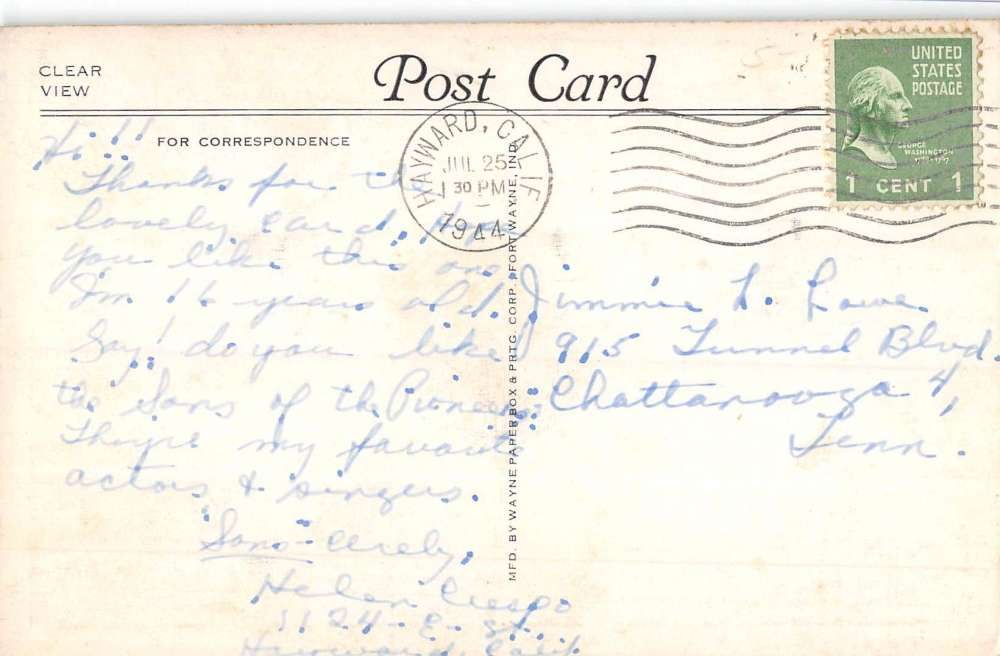 CLEAR
VIEW
Post Card
FOR CORRESPONDENCE
UNITED
STATES
POSTAGE
GEORGE
WASHINGTON
1 CENT 1
HAYWARD, CALIF.
JUL 25
30 PM
1944
MFD. BY WAYNE PAPER BOX & PRTG. CORP., FORT WAYNE, IND.
Hi!!
Thanks for the
lovely card, hope
you like this one.
I'm 16 years old.
Say! do you like
the Sons of the Pioneers
They're my favorite
actors & singers.
Sons-cerely,
Helen Crespo
1124-E-St.
Hayward, Calif.
Jimmie L. Lowe
915 Tunnel Blvd.
Chattanooga 4,
Tenn.